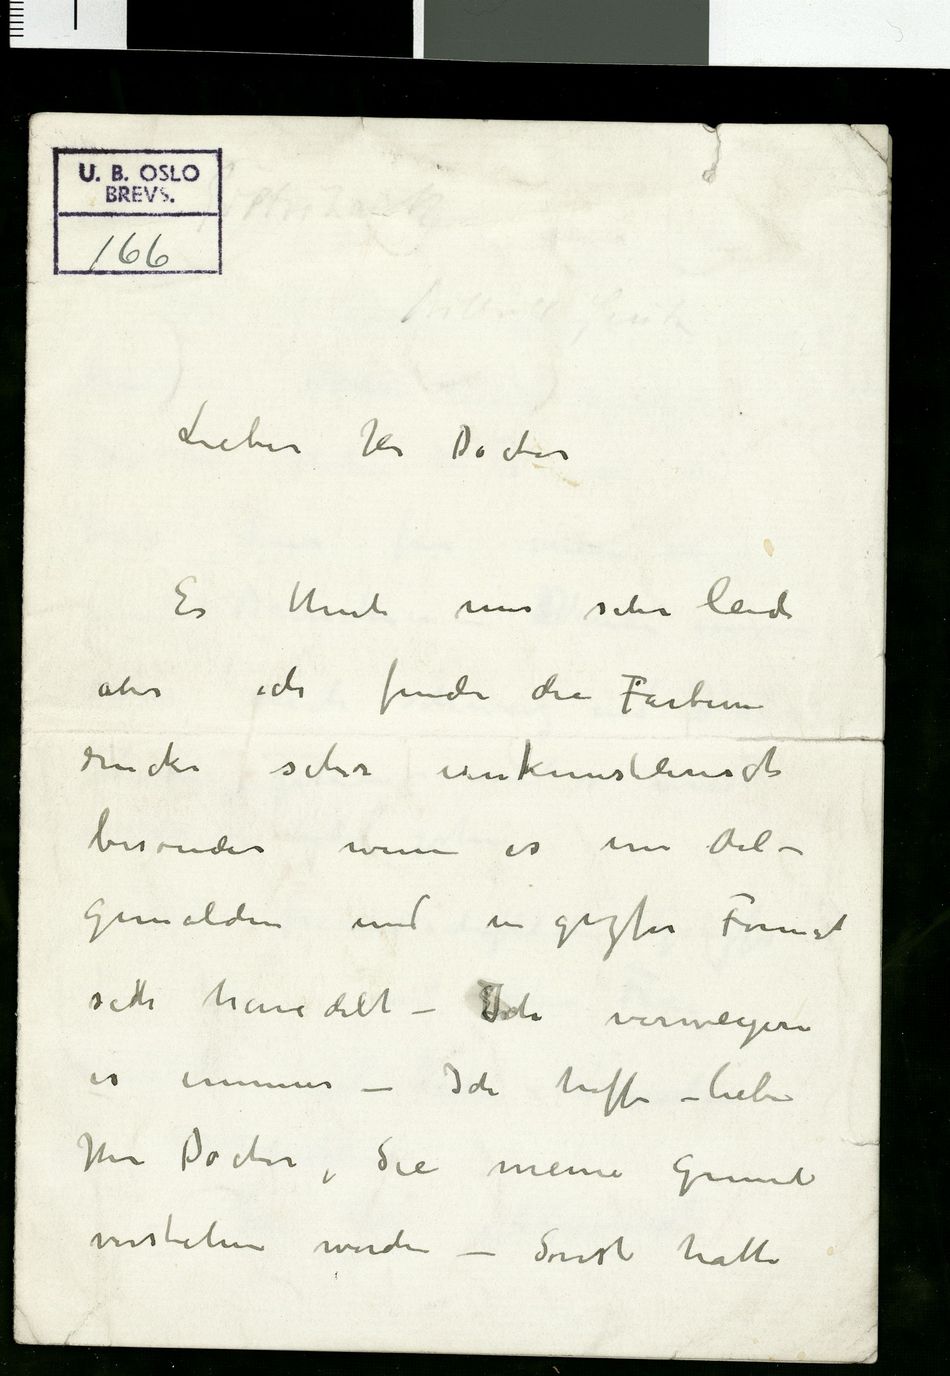 U. B. OSLO
BREVS.
166
Lieber Hr Doctor
Es thut mir sehr leid
aber ich finde die Farben
drucke sehr unkunstlerisch
besonder wenn es um Oel-
gemalden und in Format
sich handelt – Ich verweigere
es immer – Ich hoffe – lieber
Herr Doctor, Sie meine Grund
verstehen werden – Sonst hatte